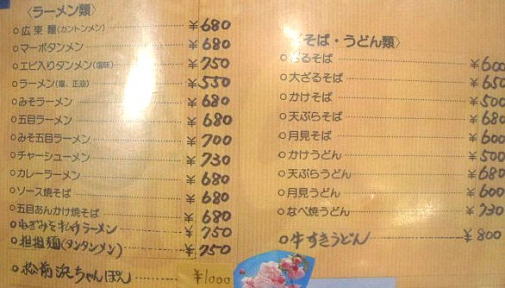 〈ラーメン類〉
○広東麺(カントンメン) ¥680
○マーボタンメン ¥680
○エビ入りタンメン(塩味) ¥750
○ラーメン(塩、正油) ¥550
○みそラーメン ¥680
○五目ラーメン ¥680
○みそ五目ラーメン ¥700
○チャーシューメン ¥730
○カレーラーメン ¥680
○ソース焼そば ¥680
○五目あんかけ焼そば ¥680
○ねぎみそ ラーメン ¥750
○担担麺(タンタンメン) ¥750
○松前浜ちゃんぽん ¥1000
そば・うどん類〉
ざるそば ¥600
○大ざるそば ¥650
○かけそば ¥500
○天ぷらそば ¥680
○月見そば ¥600
○かけうどん ¥500
○天ぷらうどん ¥680
○月見うどん ¥600
○なべ焼うどん ¥730
○牛すきうどん ¥800